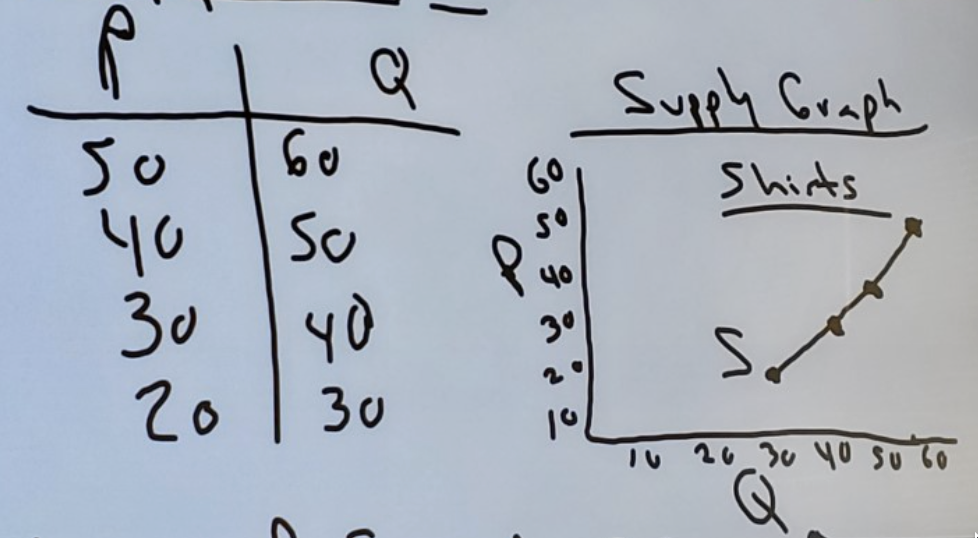 P Q
50 60
40 50
30 40
20 30
Supply Graph
Shirts
60
50
P 40
30
20
10
S
10 20 30 40 50 60
Q